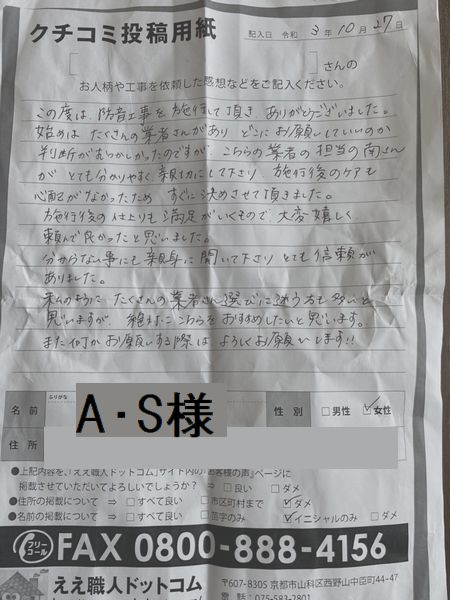 クチコミ投稿用紙
記入日 令和 3年10月27日
[ ]さんの
お人柄や工事を依頼した感想などをご記入ください。
この度は、防音工事を施行して頂き、ありがとうございました。
始めは たくさんの業者さんがあり どこにお願いしていいのか
判断がむずかしかったのですが、こちらの業者の担当の南さん
が とても分かりやすく 親切にして下さり 施行後のケアも
心配がなかったため すぐに決めさせて頂きました。
施行後の仕上りも満足がいくもので 大変嬉しく
頼んで良かったと思いました。
分からない事にも親身に聞いて下さり とても信頼が
ありました。
私のように たくさんの業者さん選びに迷う方も多いと
思いますが、絶対にこちらをおすすめしたいと思います。
また何かお願いする際は よろしくお願いします!!
ふりがな
名前 A・S様 性別 □男性 ☑女性
住所
●上記内容を、「ええ職人ドットコム」サイト内の「お客様の声」ページに
掲載させていただいてよろしいでしょうか? ⇒ □良い □ダメ
●住所の掲載について ⇒ □すべて良い □市区町村まで ☑ダメ
●名前の掲載について ⇒ □すべて良い □苗字のみ ☑イニシャルのみ □ダメ
フリーコール FAX 0800-888-4156
ええ職人ドットコム 〒607-8305 京都市山科区西野山中臣町44-47
電話:075-583-2801